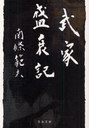 武家
盛衰記
南條範夫